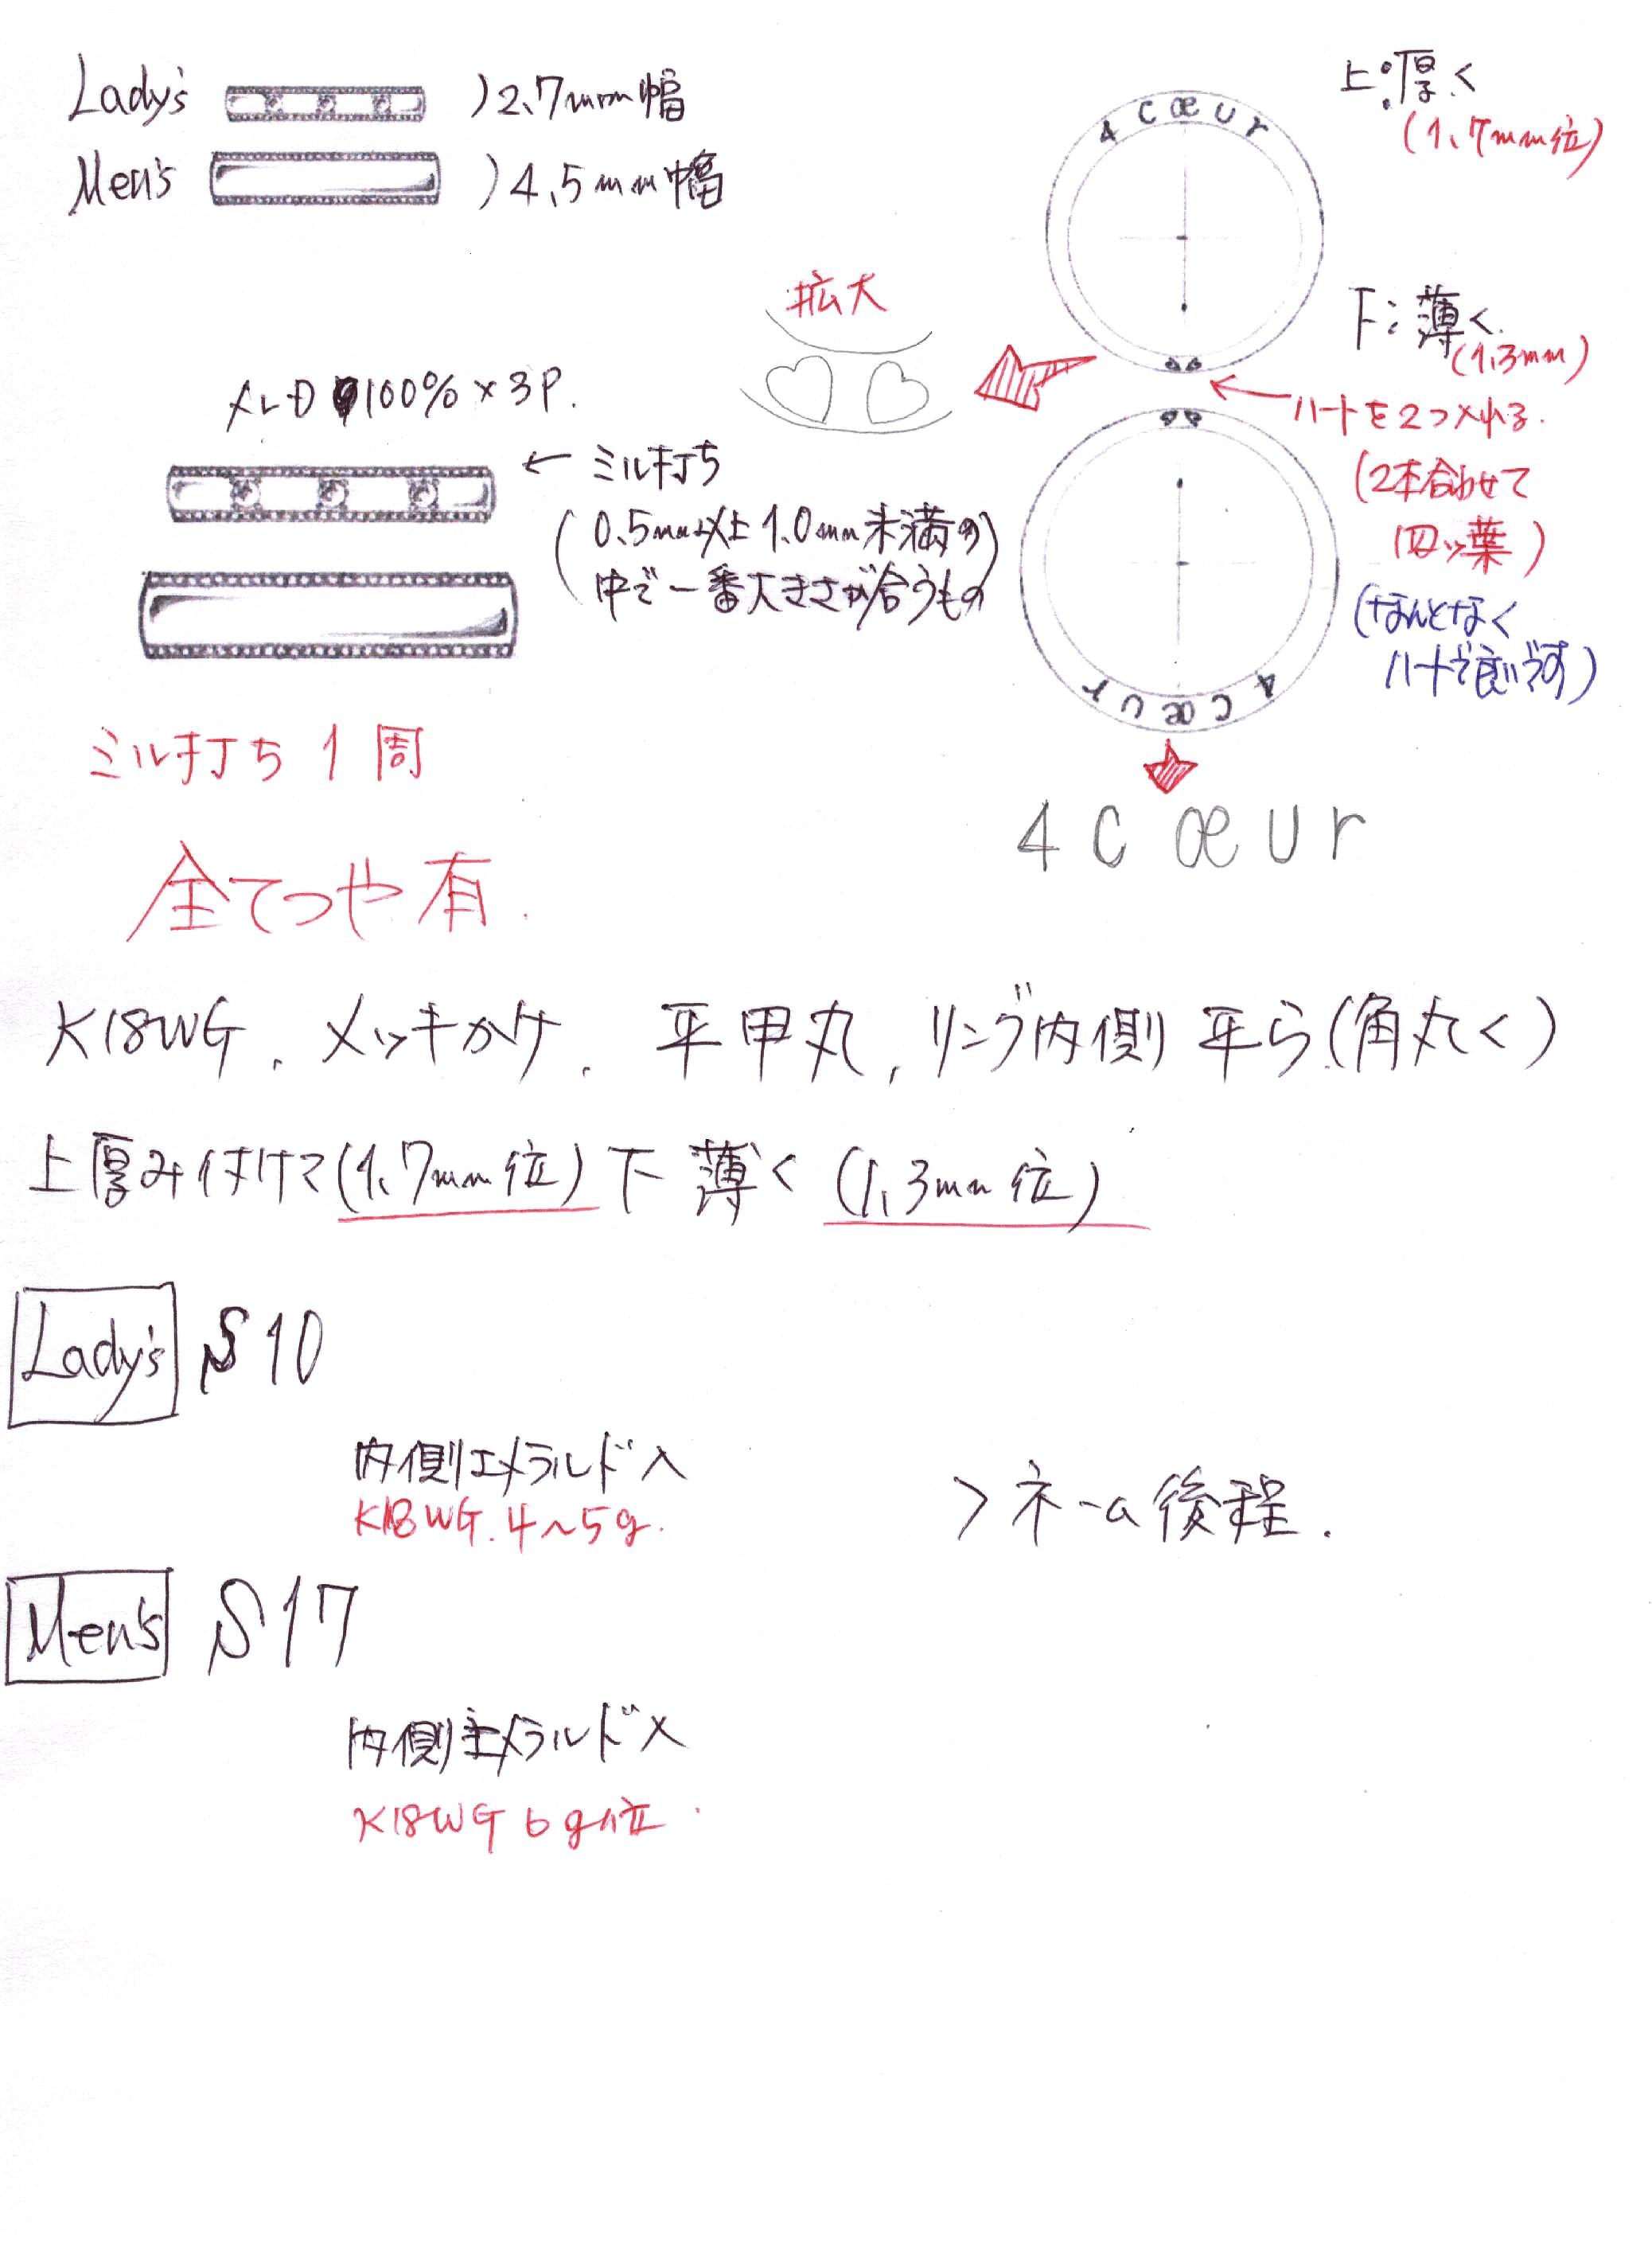 Lady's )2.7mm幅
Men's )4.5mm幅
4 cœur
上:厚く
(1.7mm位)
拡大
下:薄く.
(1.3mm)
ハートを2つ入れる.
(2本合わせて
四ッ葉)
(なんとなく
ハートで良いです)
メレD 100%×3P.
← ミル打ち
(0.5mm以上1.0mm未満の
中で一番大きさが合うもの)
4 cœur
ミル打ち1周
4 cœur
全てつや有.
K18WG. メッキかけ. 平甲丸, リング内側 平ら(角丸く)
上厚み付けて(1.7mm位)下薄く(1.3mm位)
Lady's S10
内側エメラルド入
K18WG.4〜5g.
>ネーム後程.
Men's S17
内側エメラルド入
K18WG 6g位.